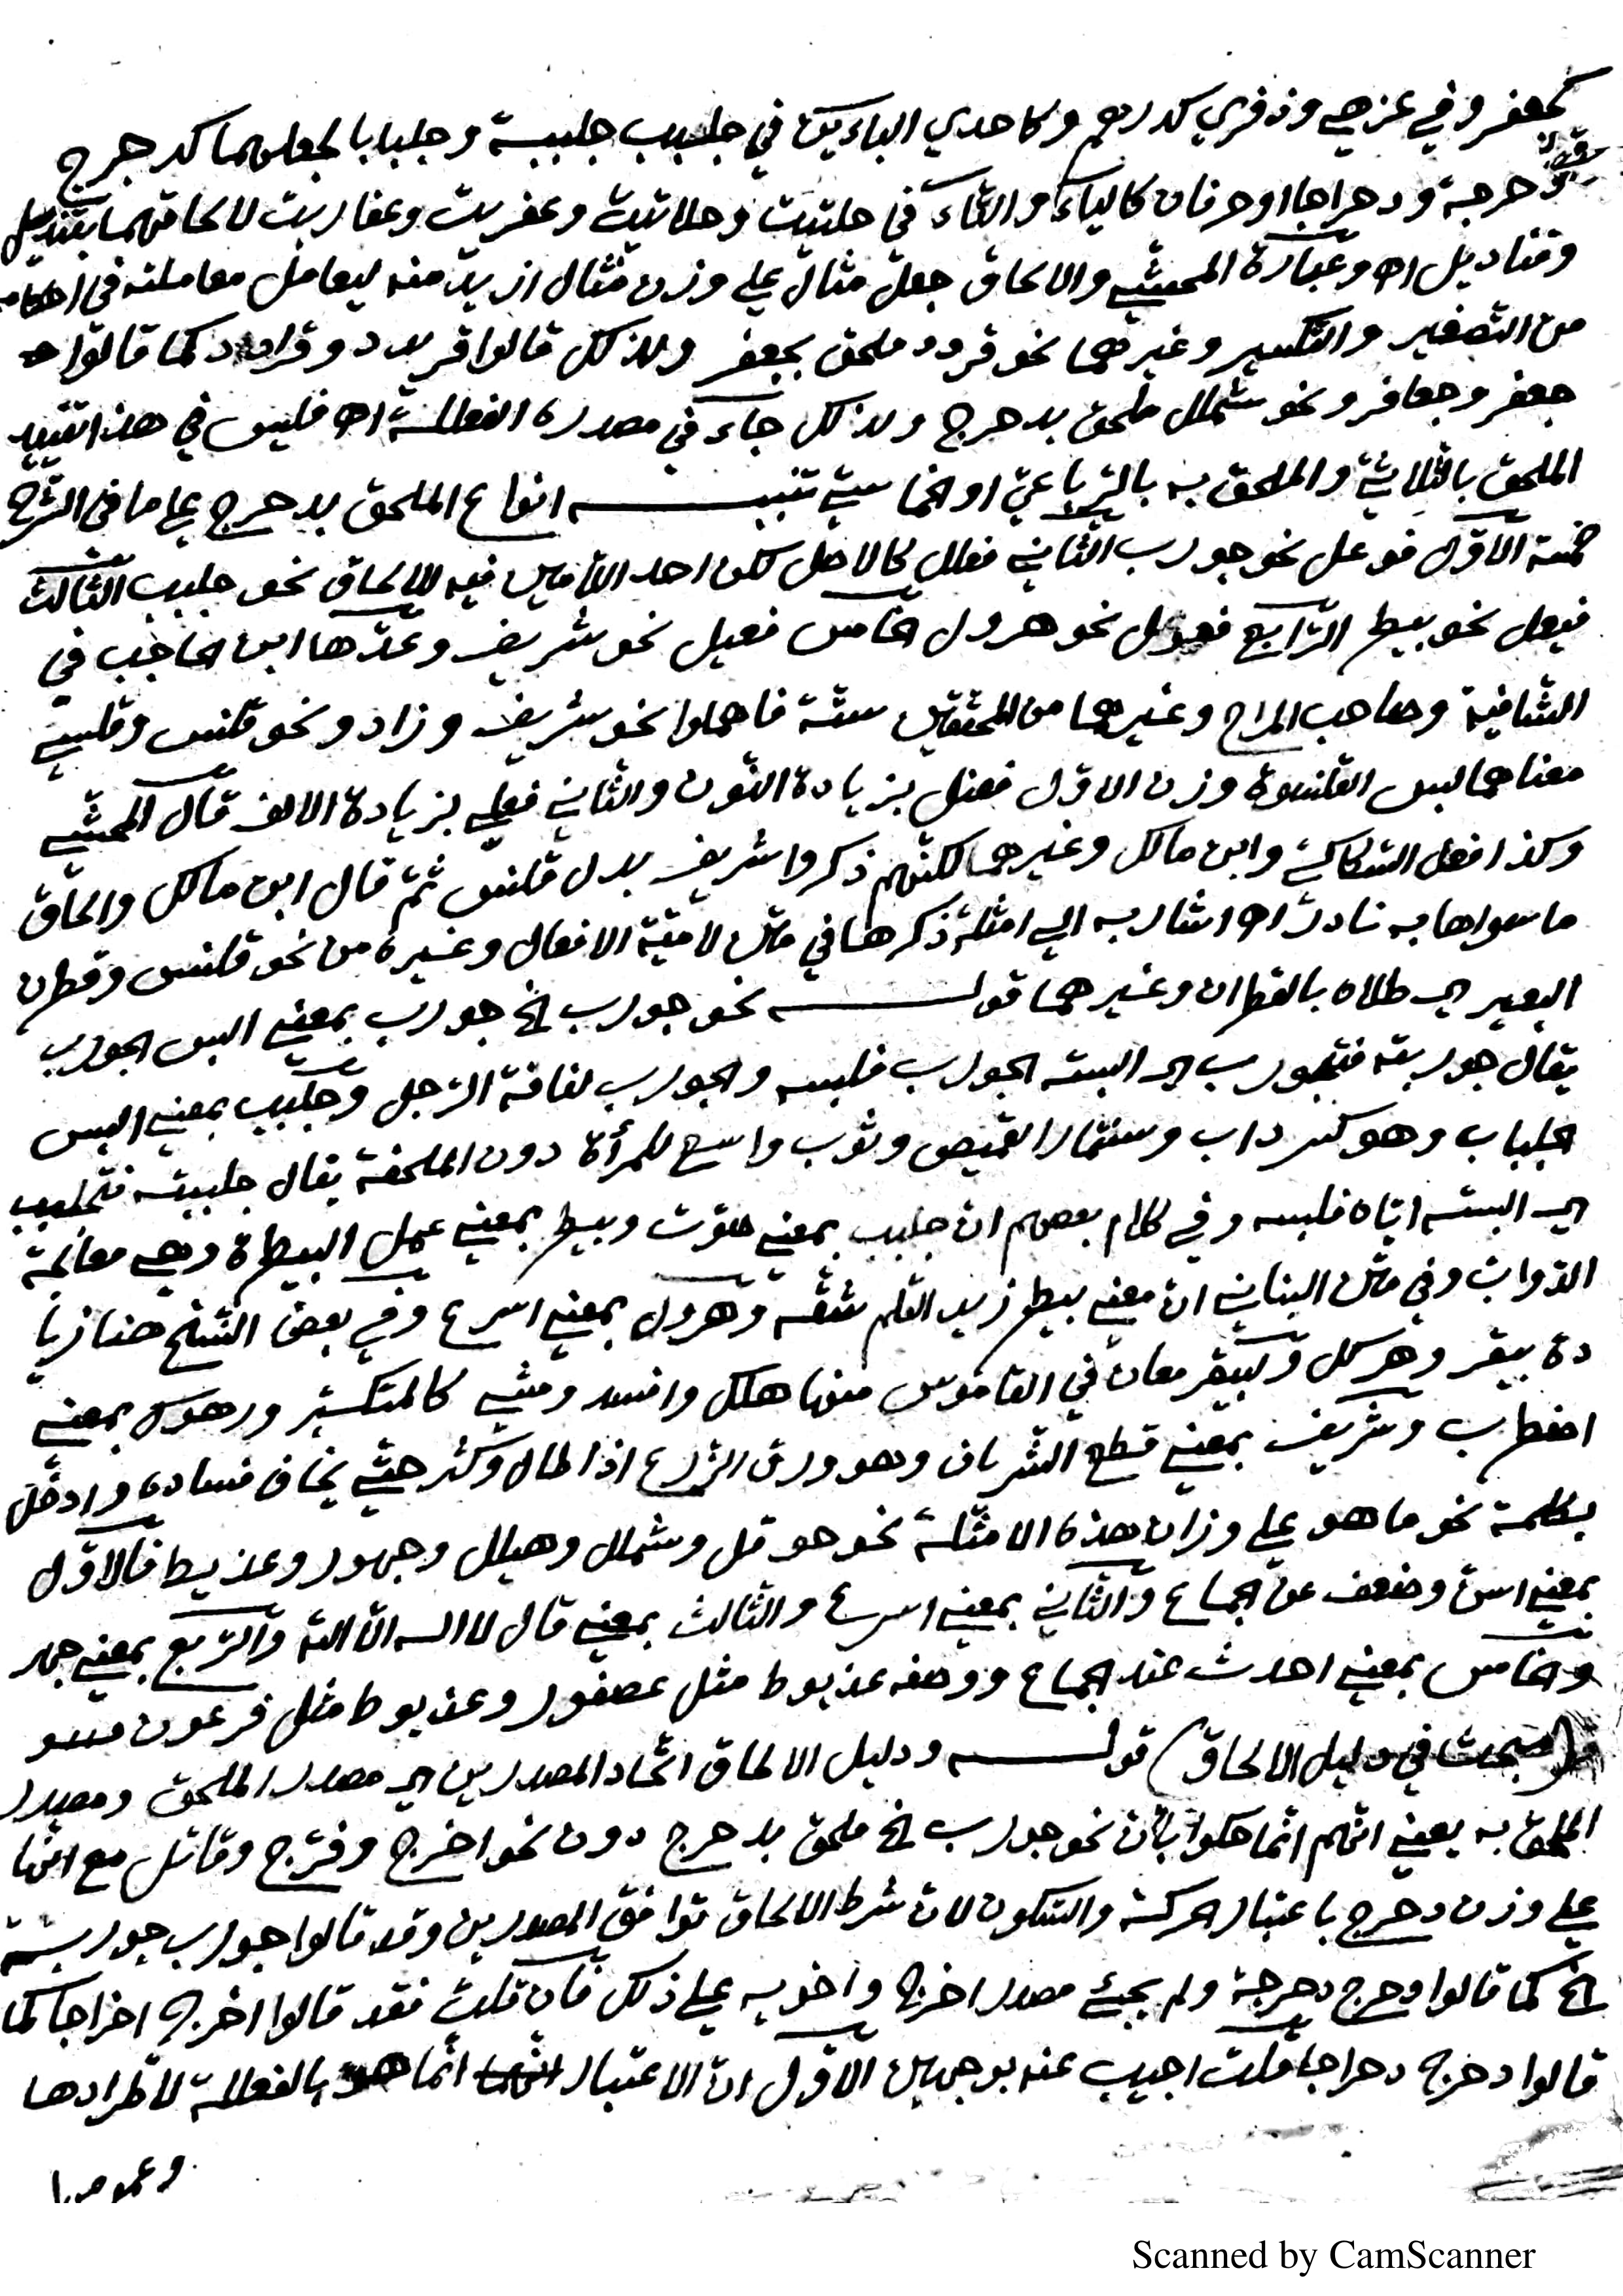 كجعفر وفي عزهي وذفري كدرهم وكاحدي الباءين في جلبب جلببة وجلبابا لجعلهما كدحرج
دحرجة ودحراجا او حرفان كالياء والتاء في حلتيت وحلاتيت وعفريت وعفاريت لالحاقهما بقنديل
وقناديل اه وعبارة المحشي والالحاق جعل مثال علي وزن مثال ازيد منه ليعامل معاملته في احكامه
من التصغير والتكسير وغيرهما نحو قردد ملحق بجعفر ولذلك قالوا قريدد وقرادد كما قالوا
جعفر وجعافر ونحو شملل ملحق بدحرج ولذلك جاء في مصدره الفعللة اه فليس في هذا تقييد
الملحق بالثلاثي والملحق به بالرباعي او الخماسي تنبيه انواع الملحق بدحرج علي ما في الشرح
خمسة الاول فوعل نحو جورب الثاني فعلل كالاصل لكن احد اللامين فيه للالحاق نحو جلبب الثالث
فيعل نحو بيطر الرابع فعول نحو هرول الخامس فعيل نحو شريف وعدها ابن الحاجب في
الشافية وصاحب المراح وغيرهما من المحققين ستة فاهملوا نحو شريف وزادو نحو قلنس وقلسي
معناهما لبس القلنسوة وزن الاول فعنل بزيادة النون والثاني فعلي بزيادة الالف قال المحشي
وكذا فعل السكاكي وابن مالك وغيرهما لكنهم ذكروا شريف بدل قلنس ثم قال ابن مالك والحاق
ما سواها به نادر اه اشار به الي امثلة ذكرها في متن لامية الافعال وغيره من نحو قلنس وقطرن
البعير اي طلاه بالقطران وغيرهما قوله نحو جورب الخ جورب بمعني البس الجورب
يقال جوربته فتجورب اي البسته الجورب فلبسه والجورب لفافة الرجل وجلبب بمعني البس
الجلباب وهو كسرداب وسنمار القميص وثوب واسع للمرأة دون الملحفة يقال جلببته فتجلبب
اي البسته اياه فلبسه وفي كلام بعضهم ان جلبب بمعني صوت وبيطر بمعني عمل البيطرة وهي معالجة
الدواب وفي متن البناني ان معني بيطر زيد القلم شقه وهرول بمعني اسرع وفي بعض النسخ هنا زيا
دة بيقر وهرسل ولبيقر معان في القاموس منها هلك وافسد ومشي كالمتكبر ورهوك بمعني
اضطرب وشريف بمعني قطع الشرياف وهو ورق الزرع اذا طال وكثر حتي يخاف فساده وادخل
بكلمة نحو ما هو علي وزان هذه الامثلة نحو حوقل وشملل وهيلل وجهور وعذيط فالاول
بمعني اسن وضعف عن الجماع والثاني بمعني اسرع والثالث بمعني قال لا اله الا الله والرابع بمعني جهر
والخامس بمعني احدث عند الجماع ووصفه عذيوط مثل عصفور وعذيوط مثل فرعون
(مبحث في دليل الالحاق) قوله ودليل الالحاق اتحاد المصدرين اي مصدر الملحق ومصدر
الملحق به يعني انهم انما حكموا بأن نحو جورب الخ ملحق بدحرج دون نحو اخرج وفرج وقاتل مع انها
علي وزن دحرج باعتبار الحركة والسكون لان شرط الالحاق توافق المصدرين وقد قالوا جورب جوربة
الخ كما قالوا دحرج دحرجة ولم يجئ مصدر اخرج واخويه علي ذلك فان قلت فقد قالوا اخرج اخراجا كما
قالوا دحرج دحراجا قلت اجيب عنه بوجهين الاول ان الاعتبار انما هو بالفعللة لاطرادها
وعمومها
Scanned by CamScanner